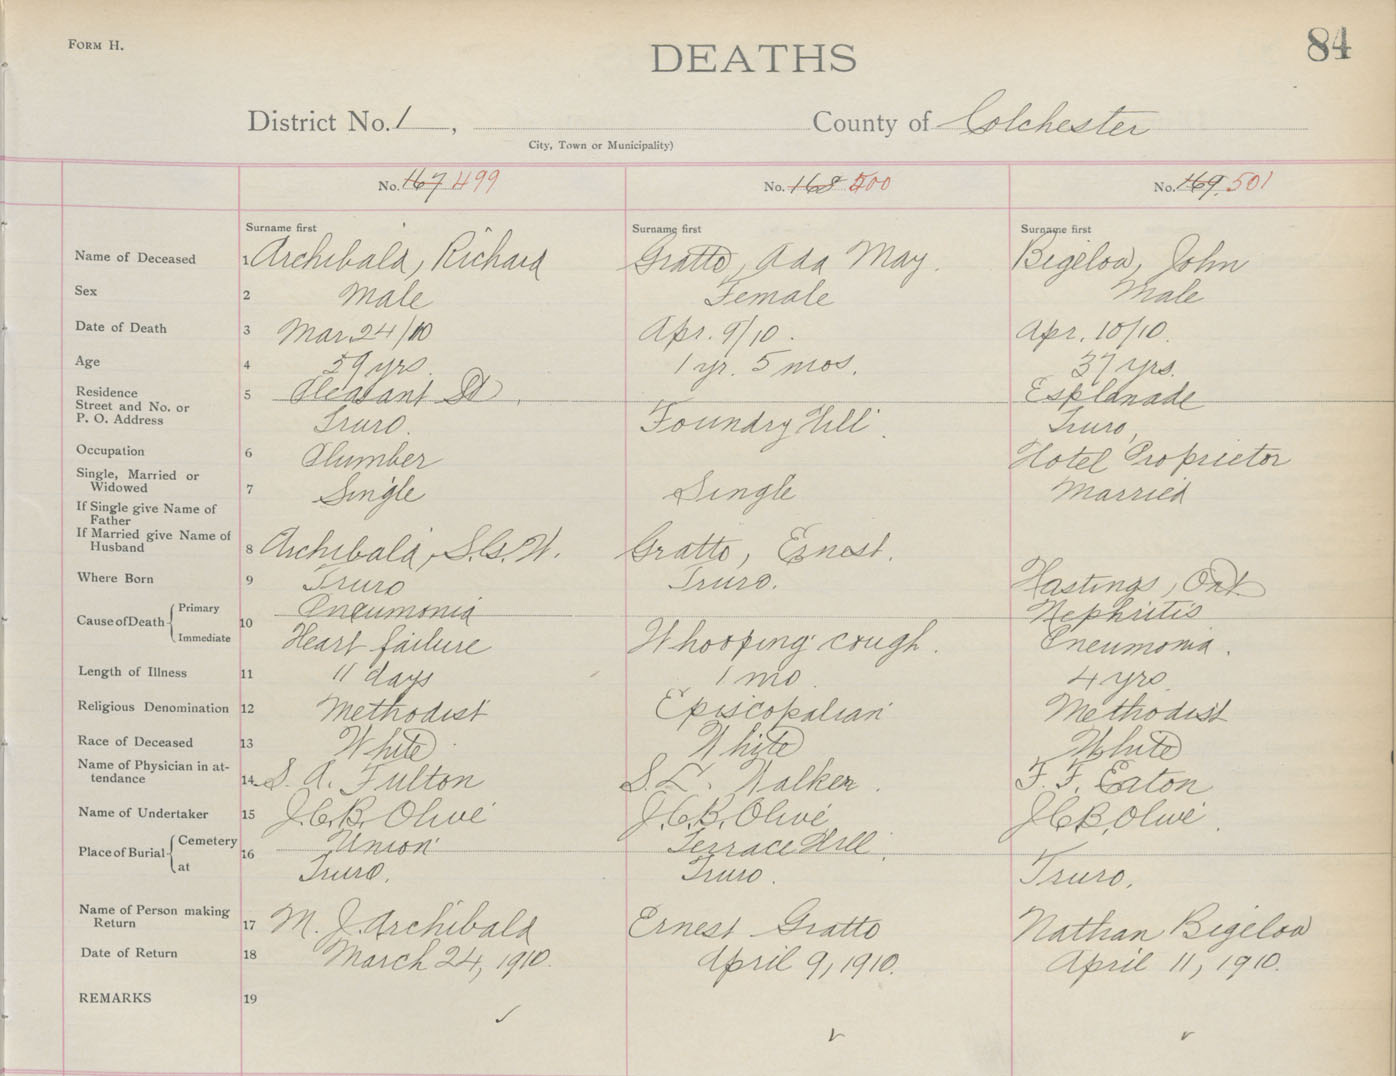 FORM H.
DEATHS
84
District No. 1, County of Colchester
City, Town or Municipality)
No. 167 499 No. 168 500 No. 169. 501
Surname first Surname first Surname first
Name of Deceased 1 Archibald, Richard Gratto, Ada May. Bigelow, John
Sex 2 Male Female Male
Date of Death 3 Mar. 24/10 Apr. 9/10. Apr. 10/10.
Age 4 59 yrs. 1 yr. 5 mos. 37 yrs.
Residence
Street and No. or 5 Pleasant St. Esplanade
P. O. Address Truro. Foundry Hill. Truro,
Occupation 6 Plumber Hotel Proprietor
Single, Married or
Widowed 7 Single Single Married
If Single give Name of
Father
If Married give Name of
Husband 8 Archibald, S.G.W. Gratto, Ernest.
Where Born 9 Truro Truro. Hastings, Ont.
Cause of Death Primary 10 Pneumonia Nephritis
Immediate Heart failure Whooping cough. Pneumonia.
Length of Illness 11 11 days 1 mo. 4 yrs
Religious Denomination 12 Methodist Episcopalian Methodist
Race of Deceased 13 White White White
Name of Physician in at-
tendance 14 S. A. Fulton S. L. Walker. F. F. Eaton
Name of Undertaker 15 J.C.B. Olive J.C.B. Olive J.C.B. Olive.
Place of Burial Cemetery 16 Union Terrace Hill.
at Truro. Truro. Truro.
Name of Person making
Return 17 M. J. Archibald Ernest Gratto Nathan Bigelow
Date of Return 18 March 24, 1910. April 9, 1910. April 11, 1910.
REMARKS 19